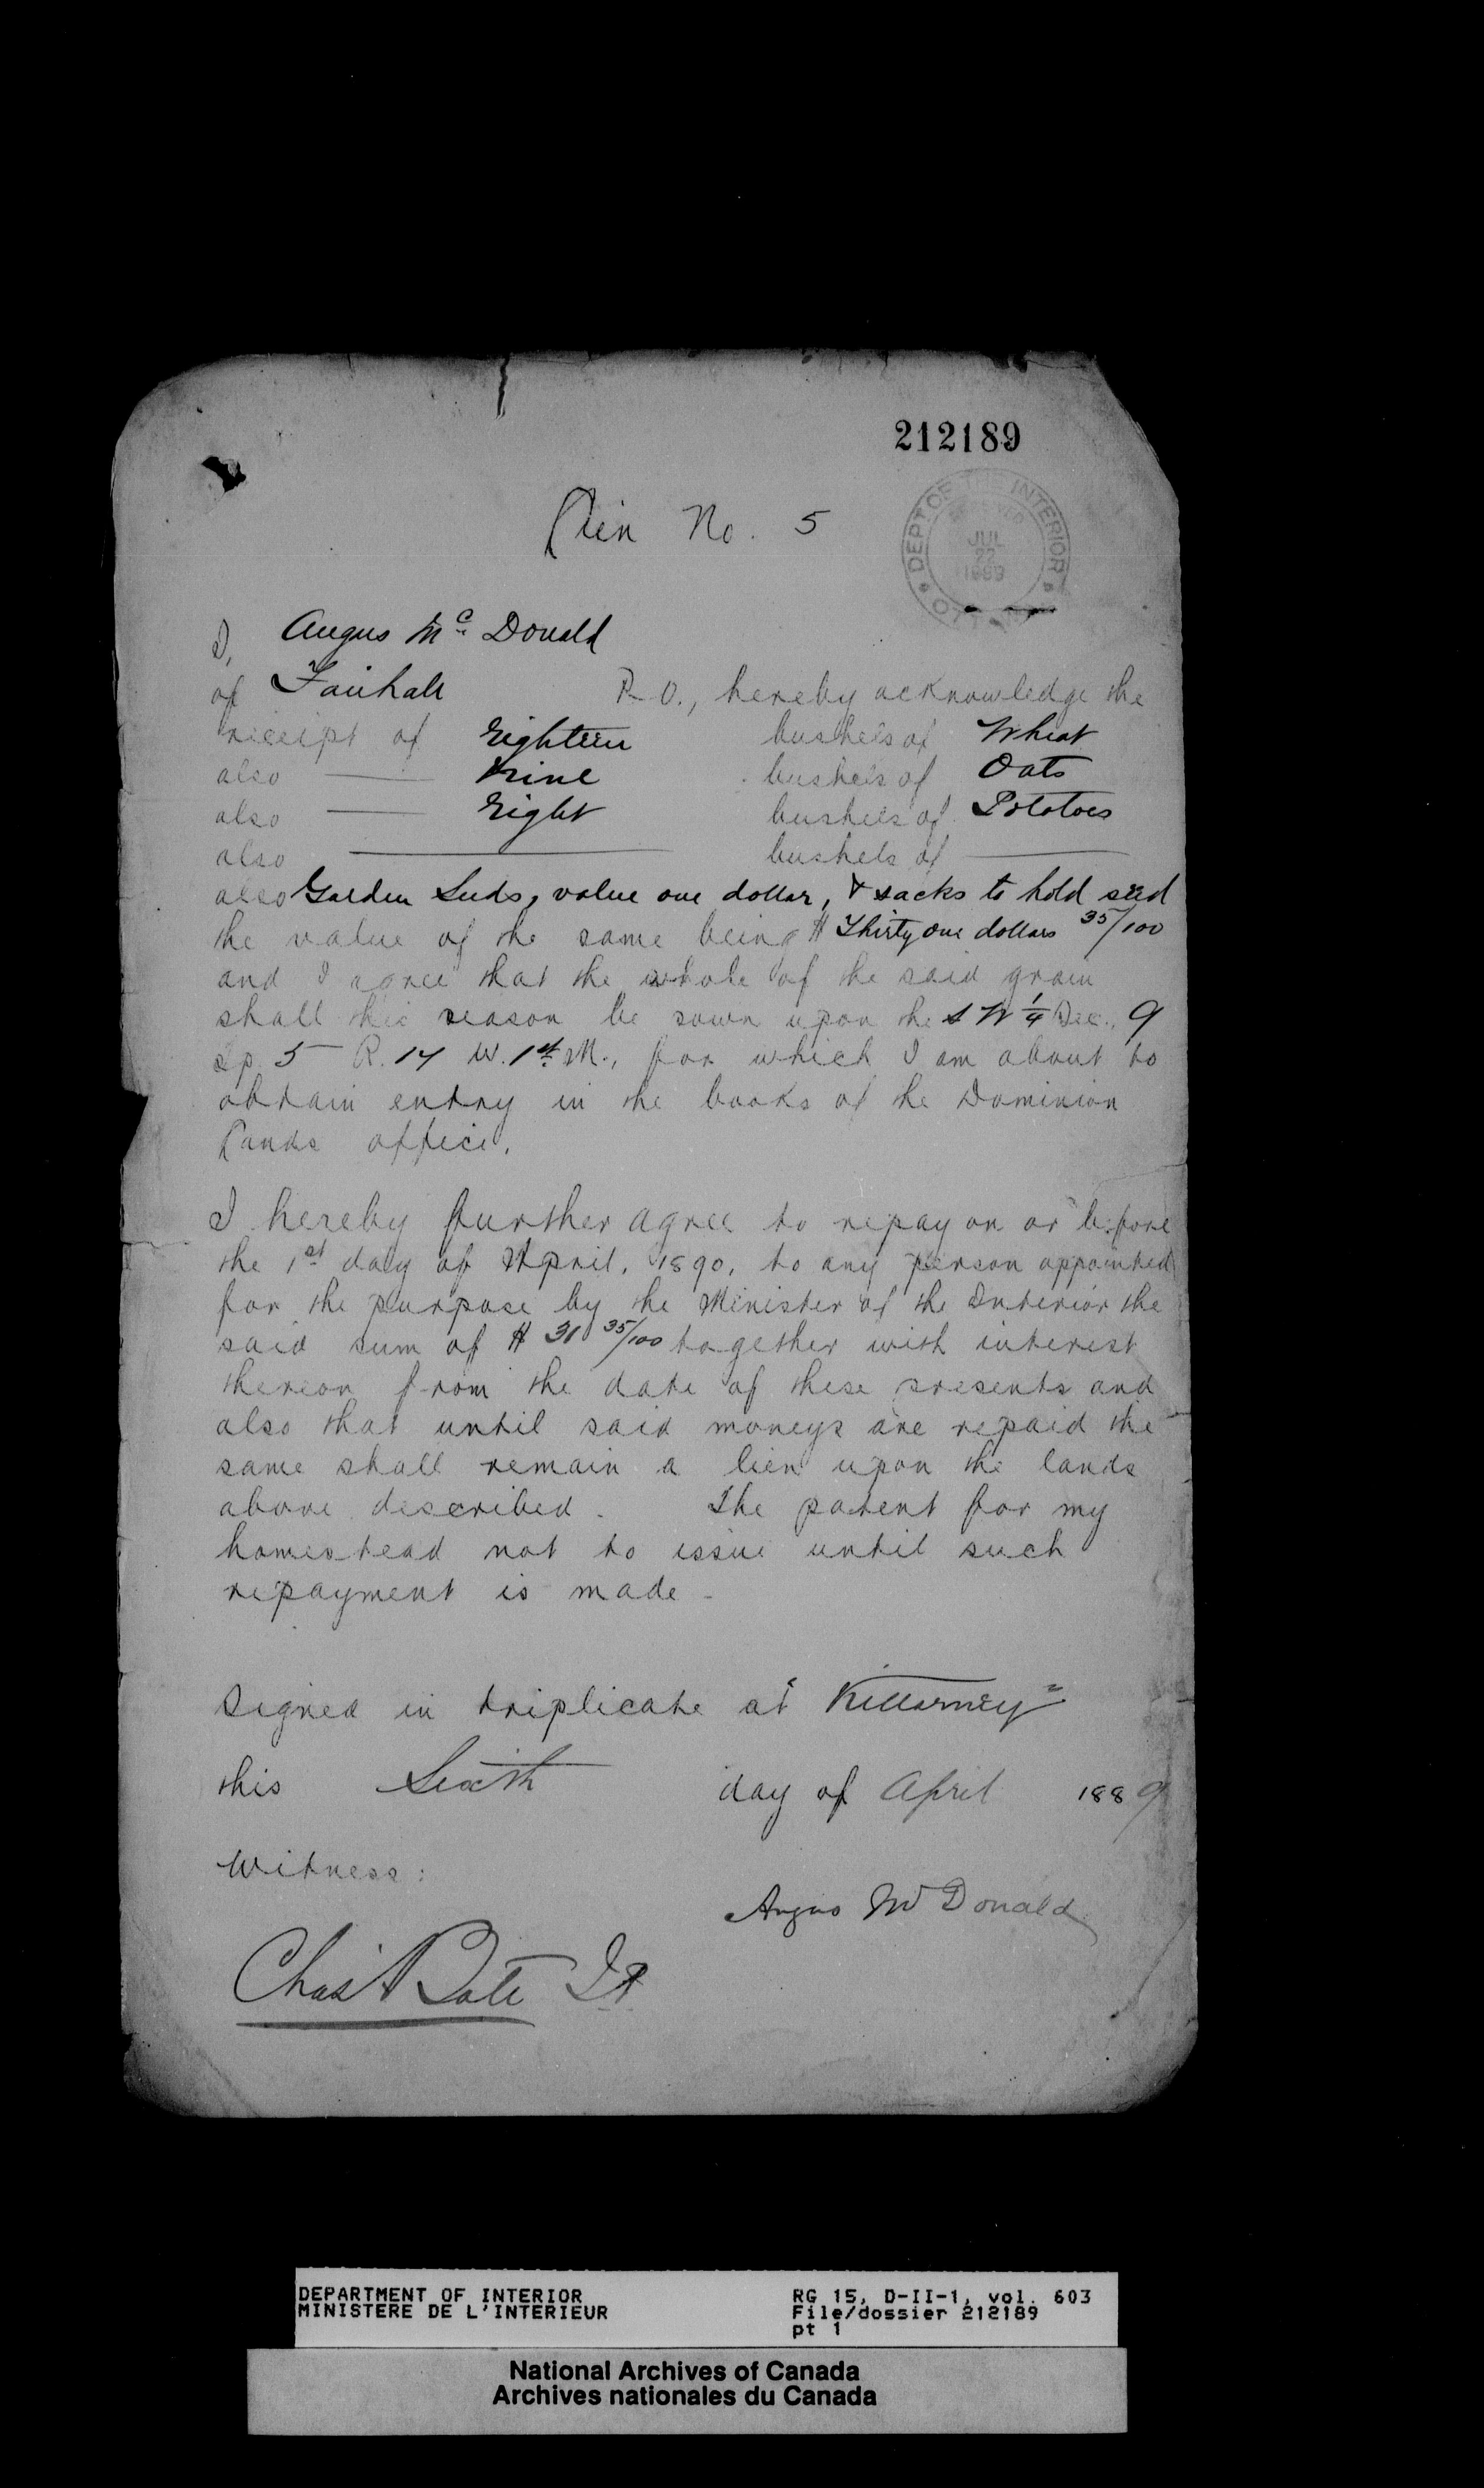 212189
Lien No. 5
DEPT OF THE INTERIOR
JUL
22
1889
I, Angus Mc Donald
of Fairhall P.O., hereby acknowledge the
receipt of Eighteen bushels of Wheat
also — Nine bushels of Oats
also — Eight bushels of Potatoes
also — bushels of —
also Garden Seeds, value one dollar, & sacks to hold seed
the value of the same being $ Thirty one dollars 35/100
and I agree that the whole of the said grain
shall this season be sown upon the S W 1/4 Sec. 9
Tp. 5 R. 14 W. 1st M., for which I am about to
obtain entry in the books of the Dominion
Lands office.
I hereby further agree to repay on or before
the 1st day of April, 1890, to any person appointed
for the purpose by the Minister of the Interior the
said sum of $ 31 35/100 together with interest
thereon from the date of these presents and
also that until said moneys are repaid the
same shall remain a lien upon the lands
above described. The patent for my
homestead not to issue until such
repayment is made -
Signed in triplicate at "Killarney"
this Sixth day of April 1889
Witness:
Angus McDonald
Chas A
DEPARTMENT OF INTERIOR
MINISTERE DE L'INTERIEUR
RG 15, D-II-1, vol. 603
File/dossier 212189
pt 1
National Archives of Canada
Archives nationales du Canada